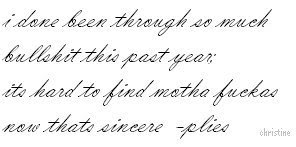 i done been through so much
bullshit this past year;
its hard to find motha fuckas
now thats sincere -plies
christine